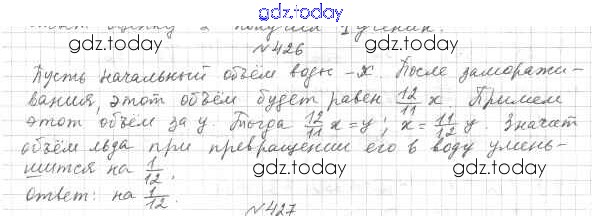 gdz.today
оценку 2 получил 1 ученик.
gdz.today gdz.today
№426
Пусть начальный объём воды - x. После заморажи-
вания, этот объём будет равен 12/11 x. Примем
этот объём за y. Тогда 12/11 x = y; x = 11/12 y. Значит
объём льда при превращении его в воду умень-
шится на 1/12.
Ответ: на 1/12.
gdz.today gdz.today
№427